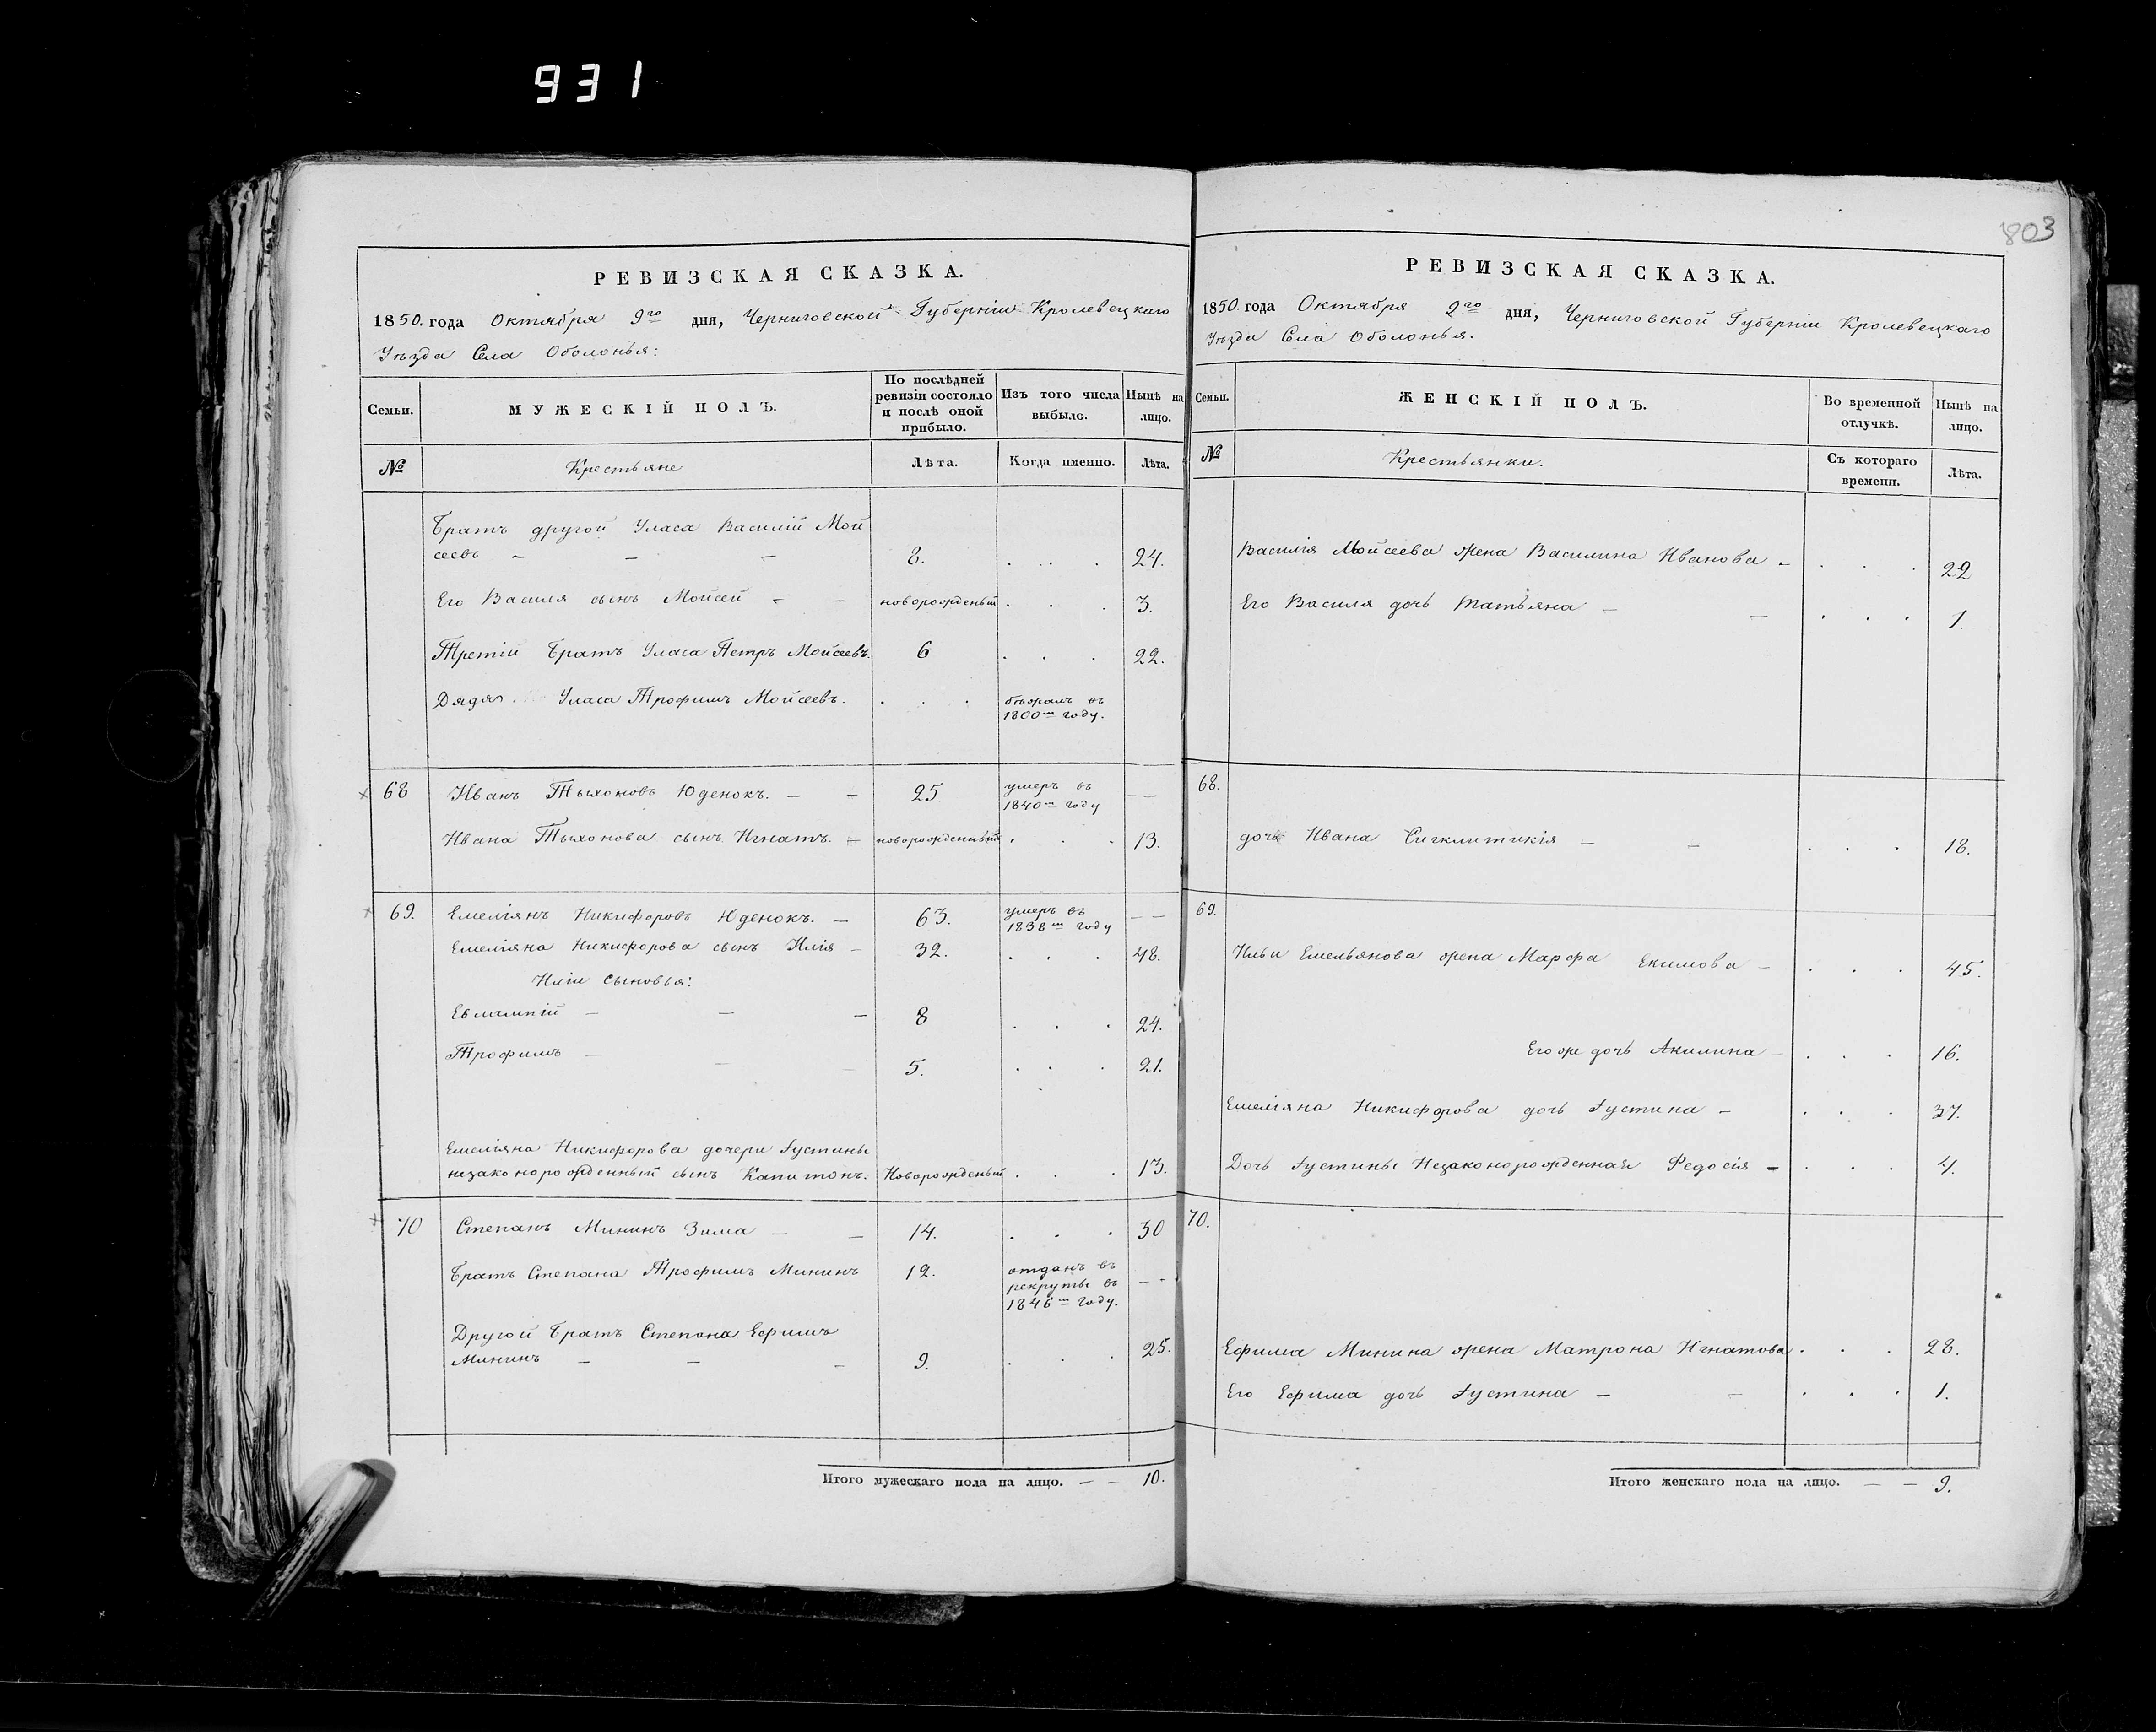 931
803
РЕВИЗСКАЯ СКАЗКА.
1850. года Октября 9го дня, Черниговской Губерніи Кролевецкаго
Уѣзда Села Оболонья:
Семьи.
МУЖЕСКІЙ ПОЛЪ.
По послѣдней
ревизіи состояло
и послѣ оной
прибыло.
Изъ того числа
выбыло.
Нынѣ на
лицо.
№
Крестьяне
Лѣта.
Когда именно.
Лѣта.
Братъ другой Уласа Василій Мой
сеевъ – – – 8. . . . 24.
Его Василя сынъ Мойсей – – новорожденый . . . 3.
Третій Братъ Уласа Петръ Мойсеевъ. 6 . . . 22.
Дядя Уласа Трофимъ Мойсеевъ. . . . бѣжалъ въ
1800м году.
68 Иванъ Тыхоновъ Юденокъ. – – 25. умеръ въ – –
1840м году
Ивана Тыхонова сынъ Игнатъ. – новорожденный . . . 13.
69. Емеліянъ Никифоровъ Юденокъ. – 63. умеръ въ – –
1838м году
Емеліяна Никифорова сынъ Илія – 32. . . . 48.
Иліи сыновья:
Евлампій – – – 8 . . . 24.
Трофимъ – – – 5. . . . 21.
Емеліяна Никифорова дочери Іустины
незаконорожденный сынъ Капитонъ. Новорожденый . . . 13.
70 Степанъ Мининъ Зима – – 14. . . . 30
Братъ Степана Трофимъ Мининъ 12. отданъ въ
рекруты въ – –
1846м году.
Другой Братъ Степана Ефимъ
Мининъ – – – 9. . . . 25.
Итого мужескаго пола на лицо. – – 10.
РЕВИЗСКАЯ СКАЗКА.
1850. года Октября 9го дня, Черниговской Губерніи Кролевецкаго
Уѣзда Села Оболонья.
Семьи.
ЖЕНСКІЙ ПОЛЪ.
Во временной
отлучкѣ.
Нынѣ на
лицо.
№
Крестьянки.
Съ котораго
времени.
Лѣта.
Василія Мойсеева жена Василина Иванова – . . . 22
Его Василя дочь Татьяна – – . . . 1.
68.
дочь Ивана Сигклитикія – – . . . 18.
69.
Ильи Емельянова жена Марфа Екимова – . . . 45.
Его же дочь Акилина – . . . 16.
Емеліяна Никифорова дочь Іустина – . . . 37.
Дочь Іустины Незаконорожденная Федосія – . . . 4.
70.
Ефима Минина жена Матрона Игнатова . . . 28.
Его Ефима дочь Іустина – – . . . 1.
Итого женскаго пола на лицо. – – 9.